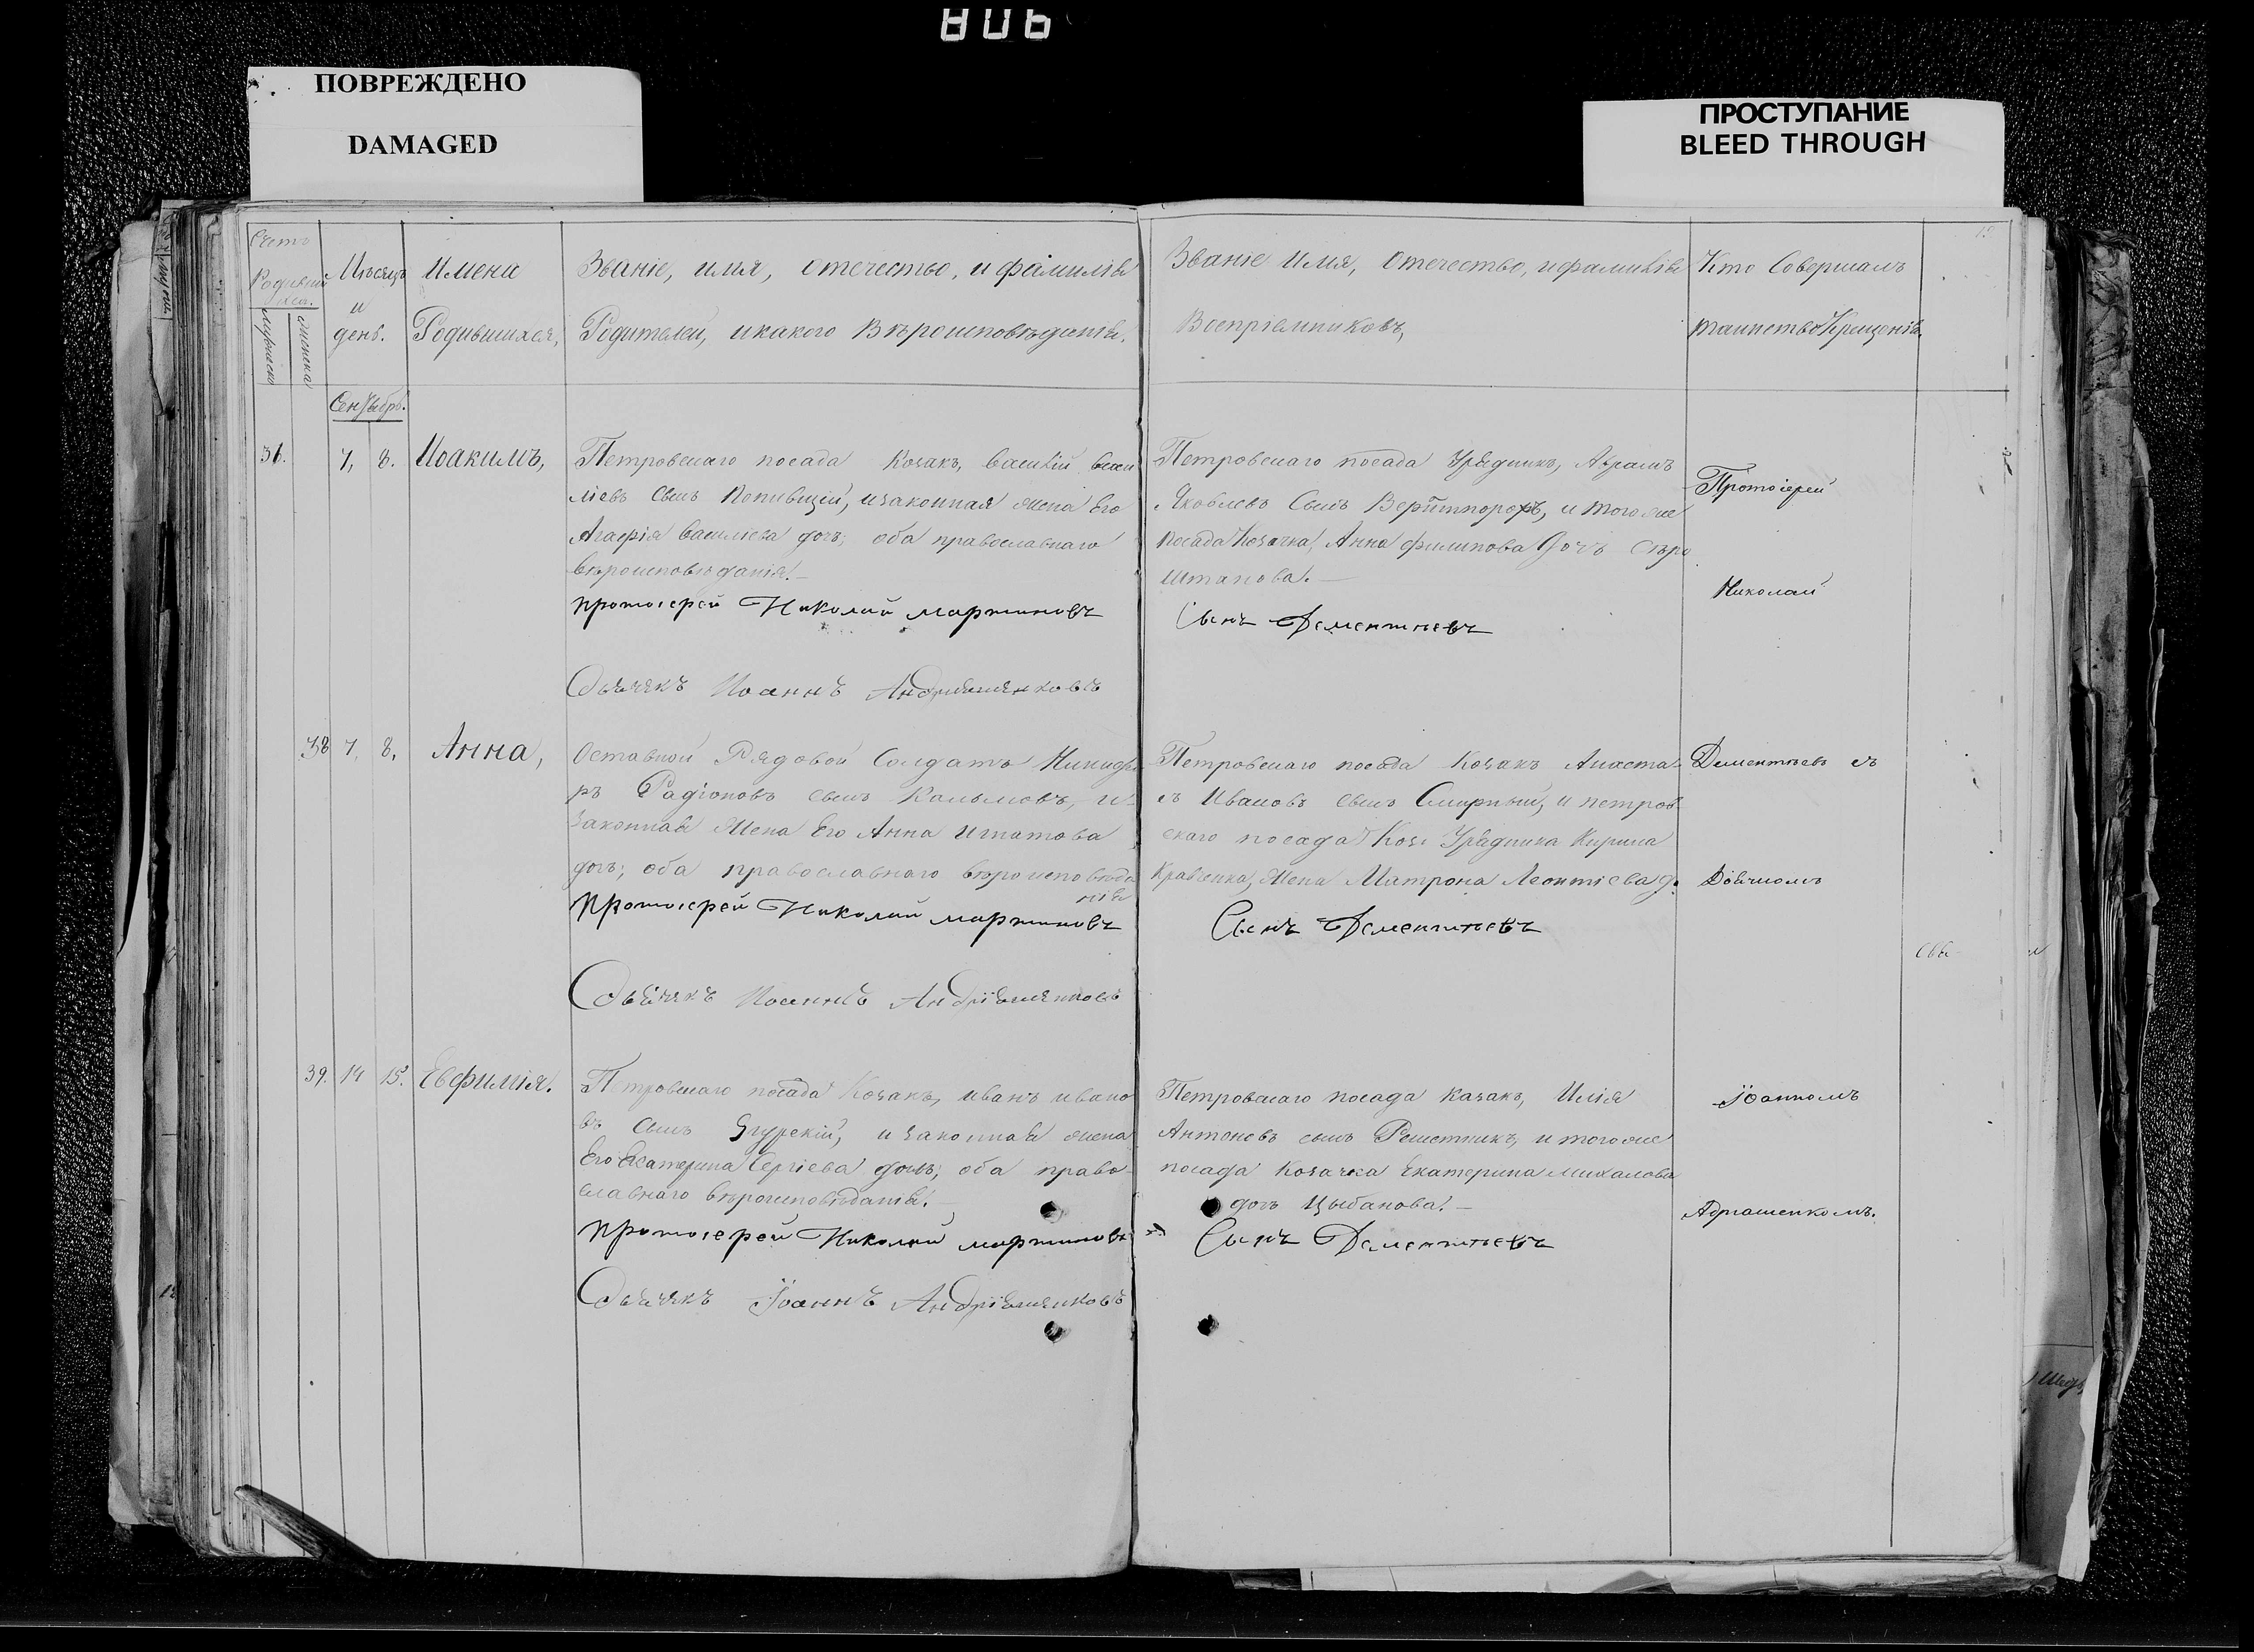 806
ПОВРЕЖДЕНО
DAMAGED
ПРОСТУПАНИЕ
BLEED THROUGH
Счетъ
Родивших
ся.
Мужеска
Женска
Мѣсяцъ
и
день.
Имена
Родившихся,
Званіе, имя, отечество, и фамилія
Родителей, и какого Вѣроисповѣданія.
Званіе имя, отечество, и фамилія
Воспріемниковъ,
Кто Совершалъ
таинство Крещенія.
Сентябрь.
36.
7, 8.
Иоакимъ,
Петровскаго посада Козакъ, василій васи
ліевъ сынъ, и законная жена Его
Агафія василіева дочь; оба православнаго
вѣроисповѣданія.
протоіерей Николай мартиновъ
Дьячекъ Иоаннъ Андріяшенковъ
Петровскаго посада Урядникъ, Аврамъ
Яковлевъ Сынъ, и того же
посада Козачка, Анна филипова Дочь
штанова.
Сынъ Дементьевъ
Протоіерей
Николай
38 7, 8,
Анна,
Оставной Рядовой Солдатъ Никифо
ръ Радіоновъ сынъ, и
законная жена Его Анна Игнатова
дочь; оба православнаго вѣроисповѣда
нія
Протоіерей Николай мартиновъ
Дьячекъ Иоаннъ Андріяшенковъ
Петровскаго посада Козакъ Анаста
съ Ивановъ сынъ Смирный, и петров
скаго посада Коза Урядника Кирила
Кравченка, жена Матрона Леонтіева д.
Сынъ Дементьевъ
Дементьевъ съ
Дьячкомъ
39. 14 15.
Евфимія.
Петровскаго посада Козакъ, иванъ ивано
въ сынъ Згурскій, и законная жена
Его Екатерина Сергіева дочь; оба право
славнаго вѣроисповѣданія.
протоіерей Николай мартиновъ
Дьячекъ Іоаннъ Андріяшенковъ
Петровскаго посада Казакъ, Илія
Антоновъ сынъ Решетникъ, и того же
посада Козачка Екатерина михалова
дочь Цыбанова.
Сынъ Дементьевъ
Іоанномъ
Адріашенкомъ.